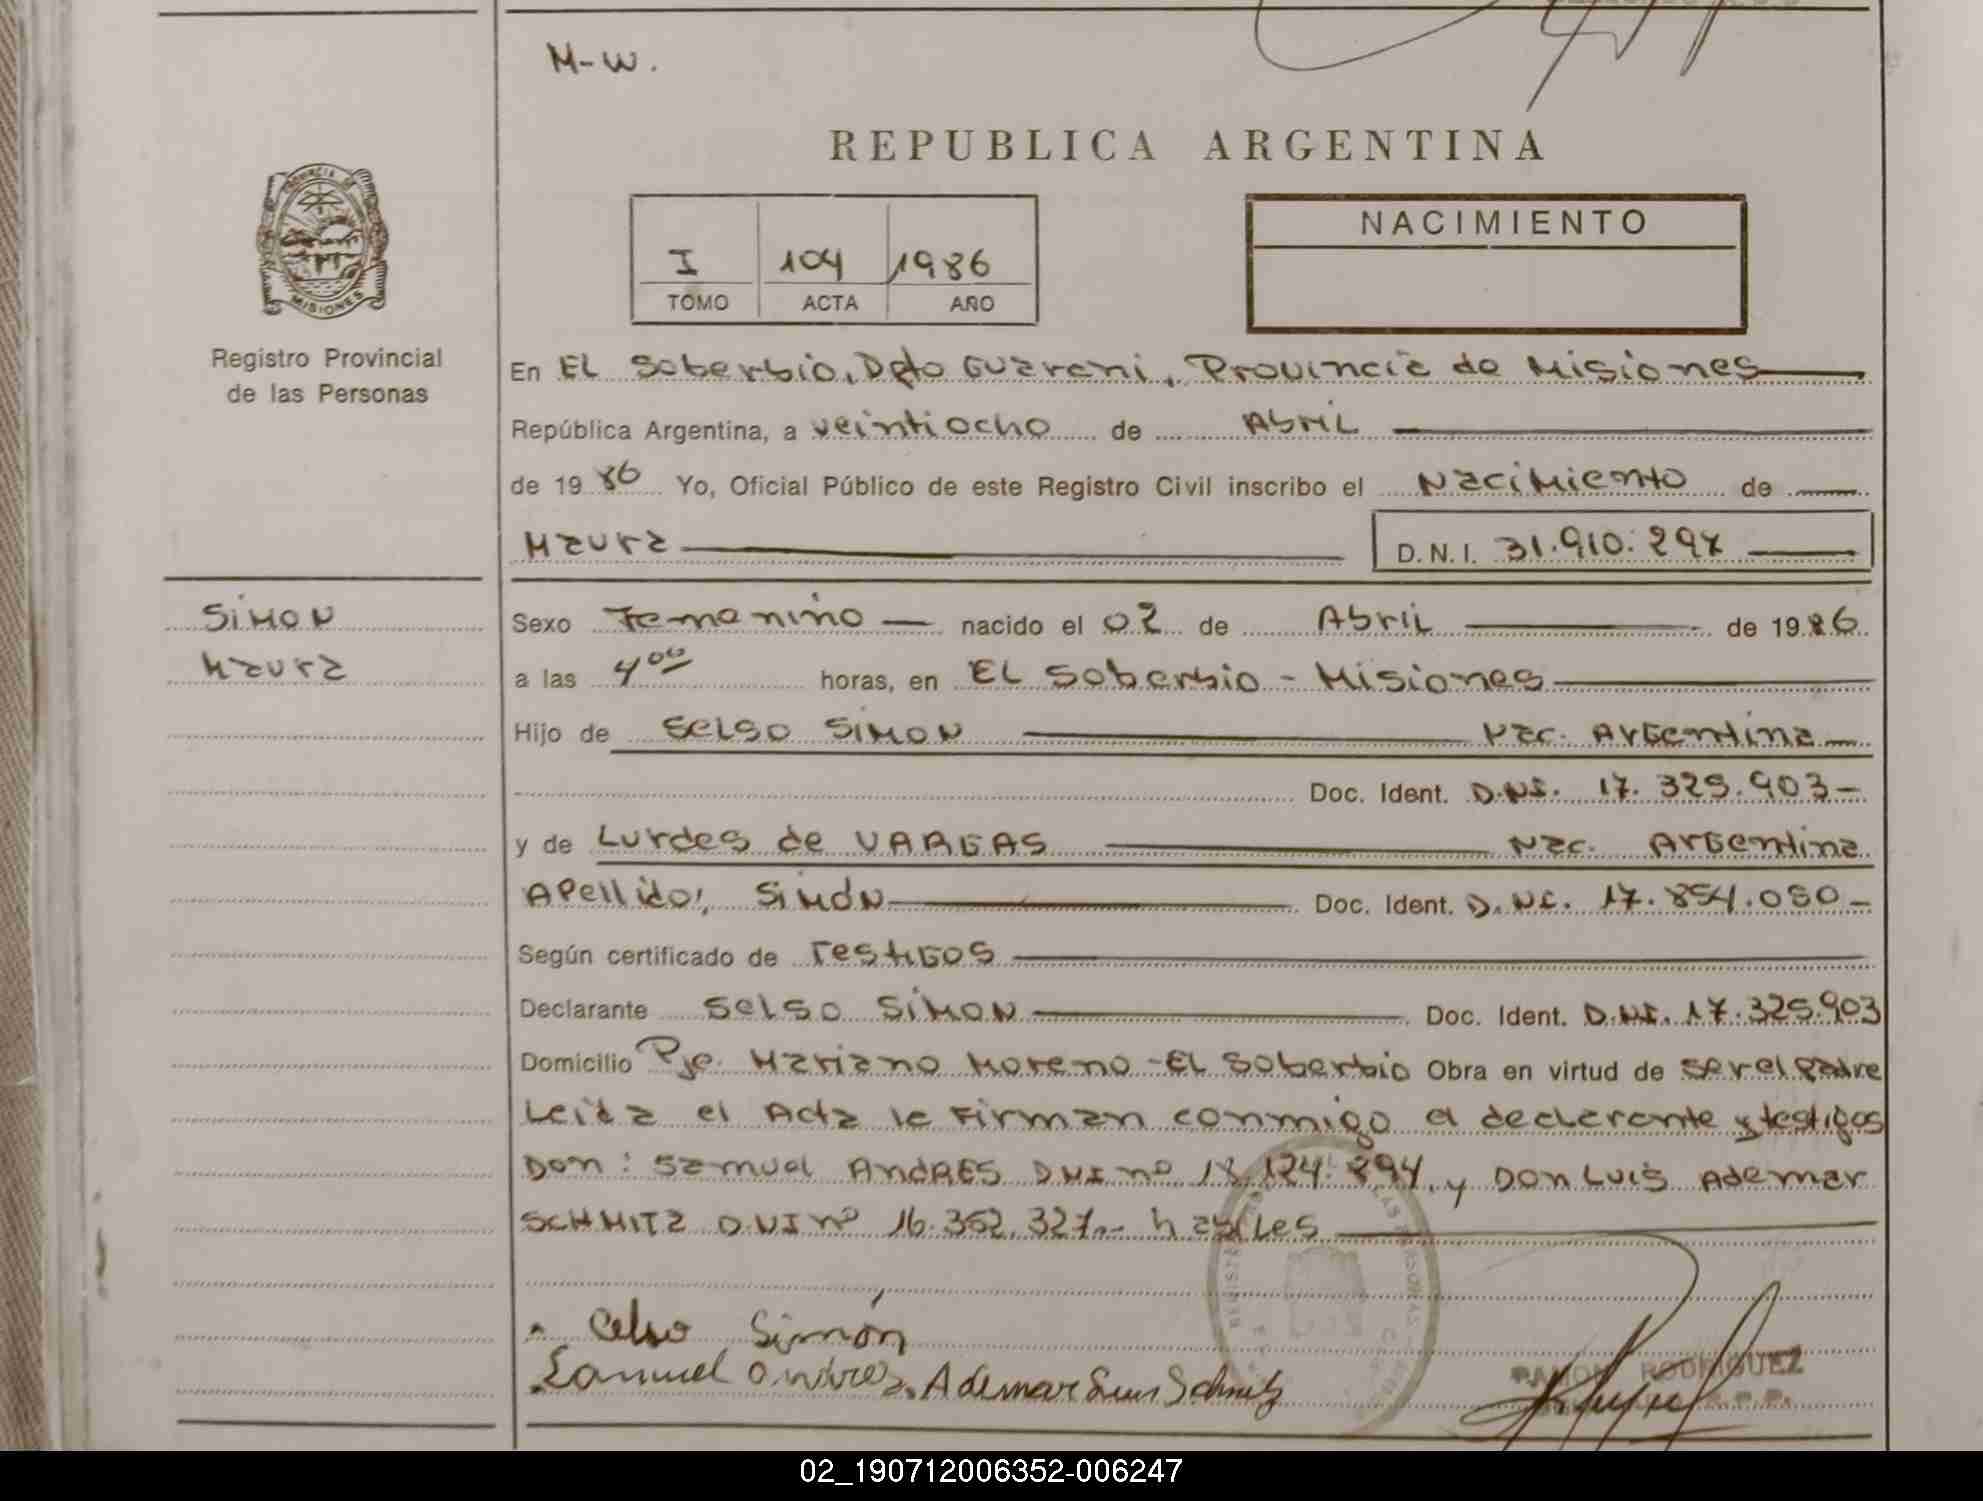 M-W.
REPUBLICA ARGENTINA
PROVINCIA DE
MISIONES
I 104 1986
TOMO ACTA AÑO
NACIMIENTO
Registro Provincial
de las Personas
En EL Soberbio, Dpto Guarani, Provincia de Misiones
República Argentina, a veintiocho de Abril
de 1986 Yo, Oficial Público de este Registro Civil inscribo el Nacimiento de
Maura D.N.I. 31.910.297
SIMON
Maura
Sexo Femenino nacido el 02 de Abril de 1986
a las 4⁰⁰ horas, en EL Soberbio - Misiones
Hijo de SELSO SIMON Nac. Argentina
Doc. Ident. D.NI. 17.325.903-
y de Lurdes de VARGAS Nac. Argentina
Apellido: SIMÓN Doc. Ident. D.NI. 17.854.050-
Según certificado de Testigos
Declarante SELSO SIMON Doc. Ident. D.NI. 17.325.903
Domicilio Pje. Mariano Moreno - El Soberbio Obra en virtud de ser el padre
Leida el Acta la Firman conmigo el declarante y testigos
Don: Samuel ANdRES DNI nº 18.124.894, y Don Luis Ademar
SCHMITZ D.NI nº 16.362.327.- habiles
Celso Simón
Samuel Andres. Ademar Luis Schmitz
RAMON RODRIGUEZ
02_190712006352-006247